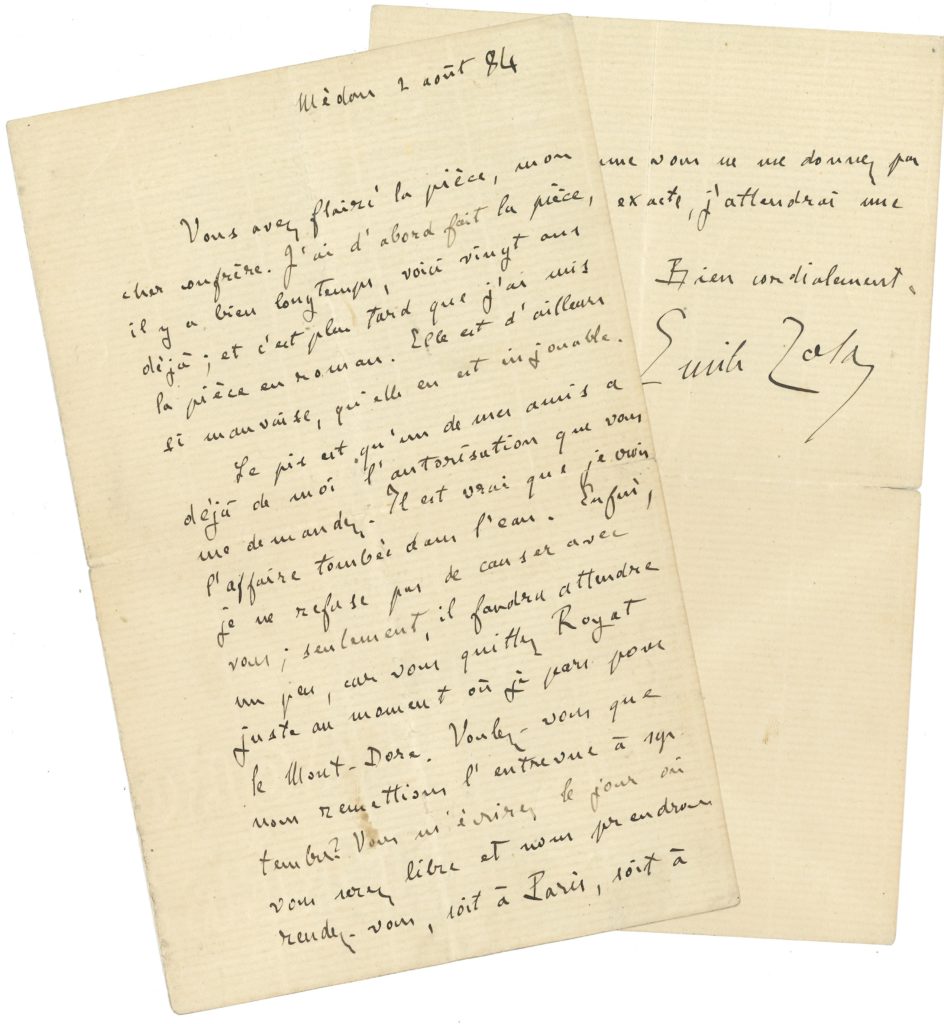 Médan 2 août 84
Vous avez flairé la pièce, mon
cher confrère. J'ai d'abord fait la pièce,
il y a bien longtemps, voici vingt ans
déjà ; et c'est plus tard que j'ai mis
la pièce en roman. Elle est d'ailleurs
si mauvaise, qu'elle en est injouable.
Le pis est qu'un de mes amis a
déjà de moi l'autorisation que vous
me demandez. Il est vrai que je crois
l'affaire tombée dans l'eau. Enfin,
je ne refuse pas de causer avec
vous ; seulement, il faudra attendre
un peu, car vous quittez Royat
juste au moment où je pars pour
le Mont-Dore. Voulez-vous que
nous remettions l'entrevue à sep-
tembre? Vous m'écrirez le jour où
vous serez libre et nous prendrons
rendez-vous, soit à Paris, soit à
vous ne me donnez pas
exacte, j'attendrai une
Bien cordialement.
Emile Zola